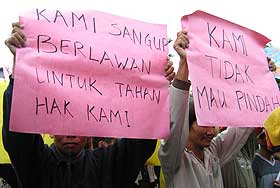 KAMI SANGUP
BERLAWAN
UNTUK TAHAN
HAK KAMI
KAMI
TIDAK
MAU PINDAH